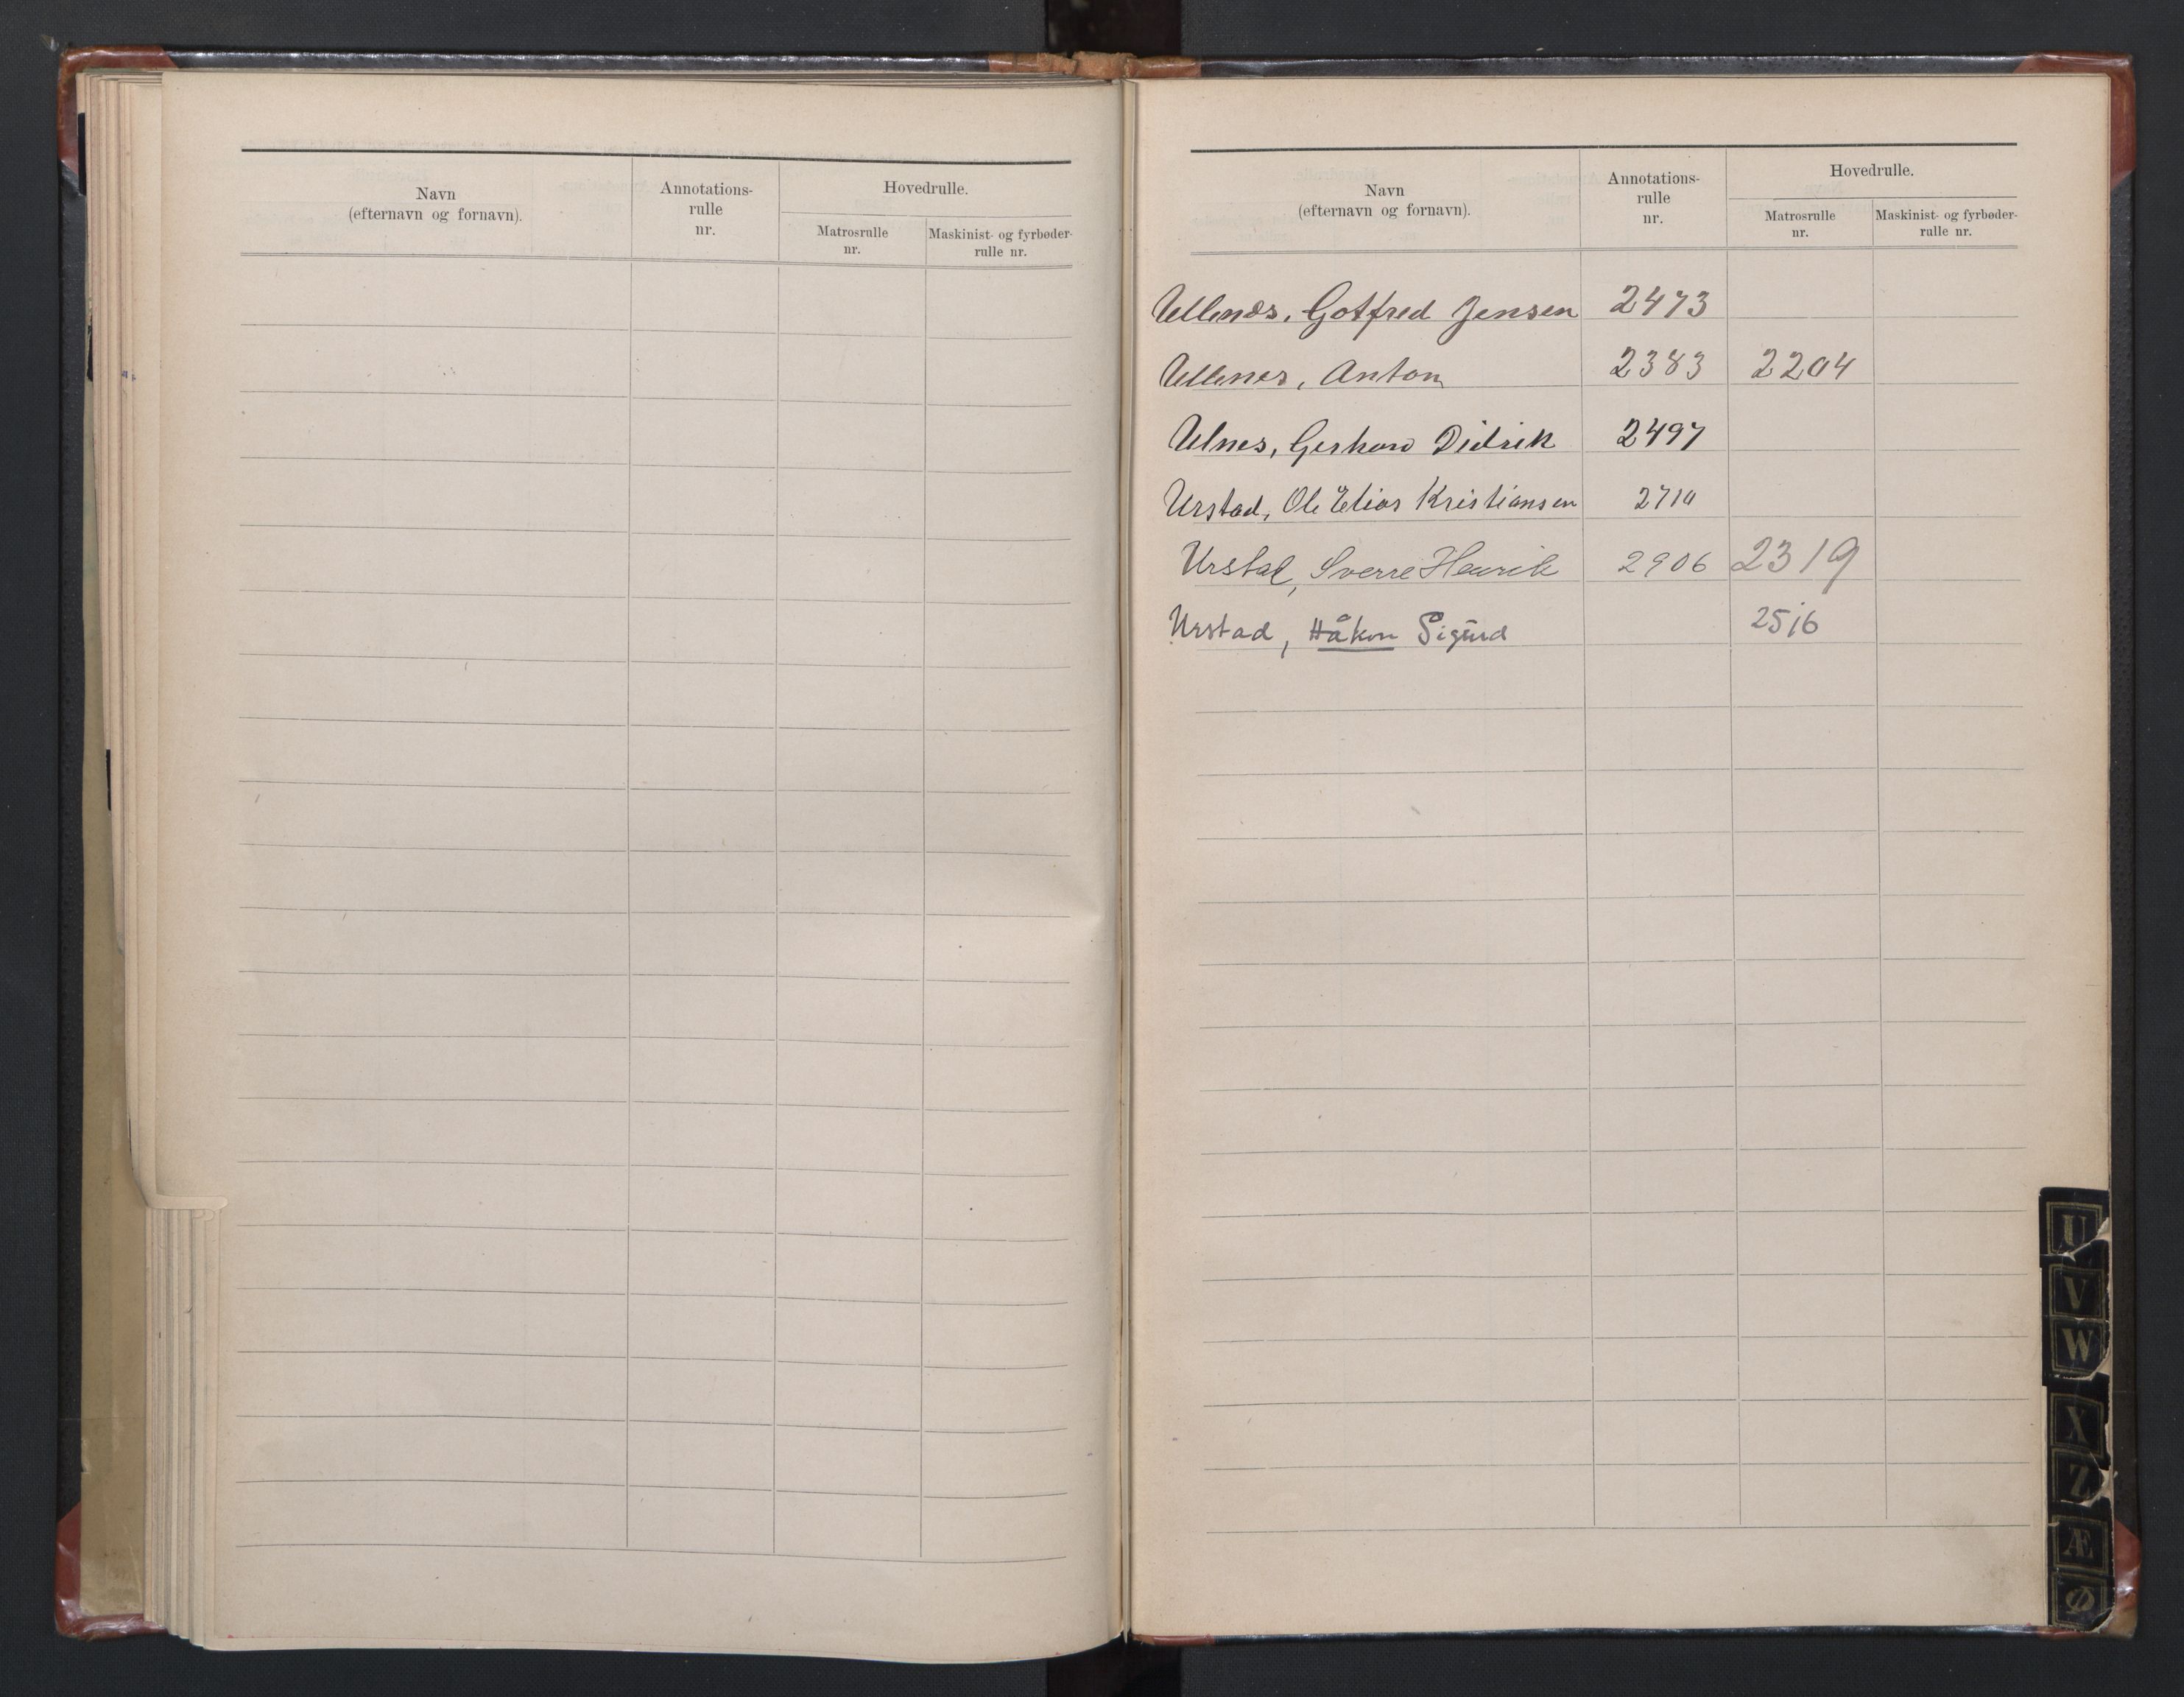 Navn
(efternavn og fornavn).
Annotations-
rulle
nr.
Hovedrulle.
Matrosrulle
nr.
Maskinist- og fyrbøder-
rulle nr.
Navn
(efternavn og fornavn).
Annotations-
rulle
nr.
Hovedrulle.
Matrosrulle
nr.
Maskinist- og fyrbøder-
rulle nr.
Ullenæs, Gotfred Jensen 2473
Ullenes, Anton 2383 2204
Ulnes, Gerhard Didrik 2497
Urstad, Ole Elias Kristiansen 2710
Urstad, Sverre Henrik 2906 2319
Urstad, Håkon Sigurd 2516
U
V
W
X
Z
Æ
Ø